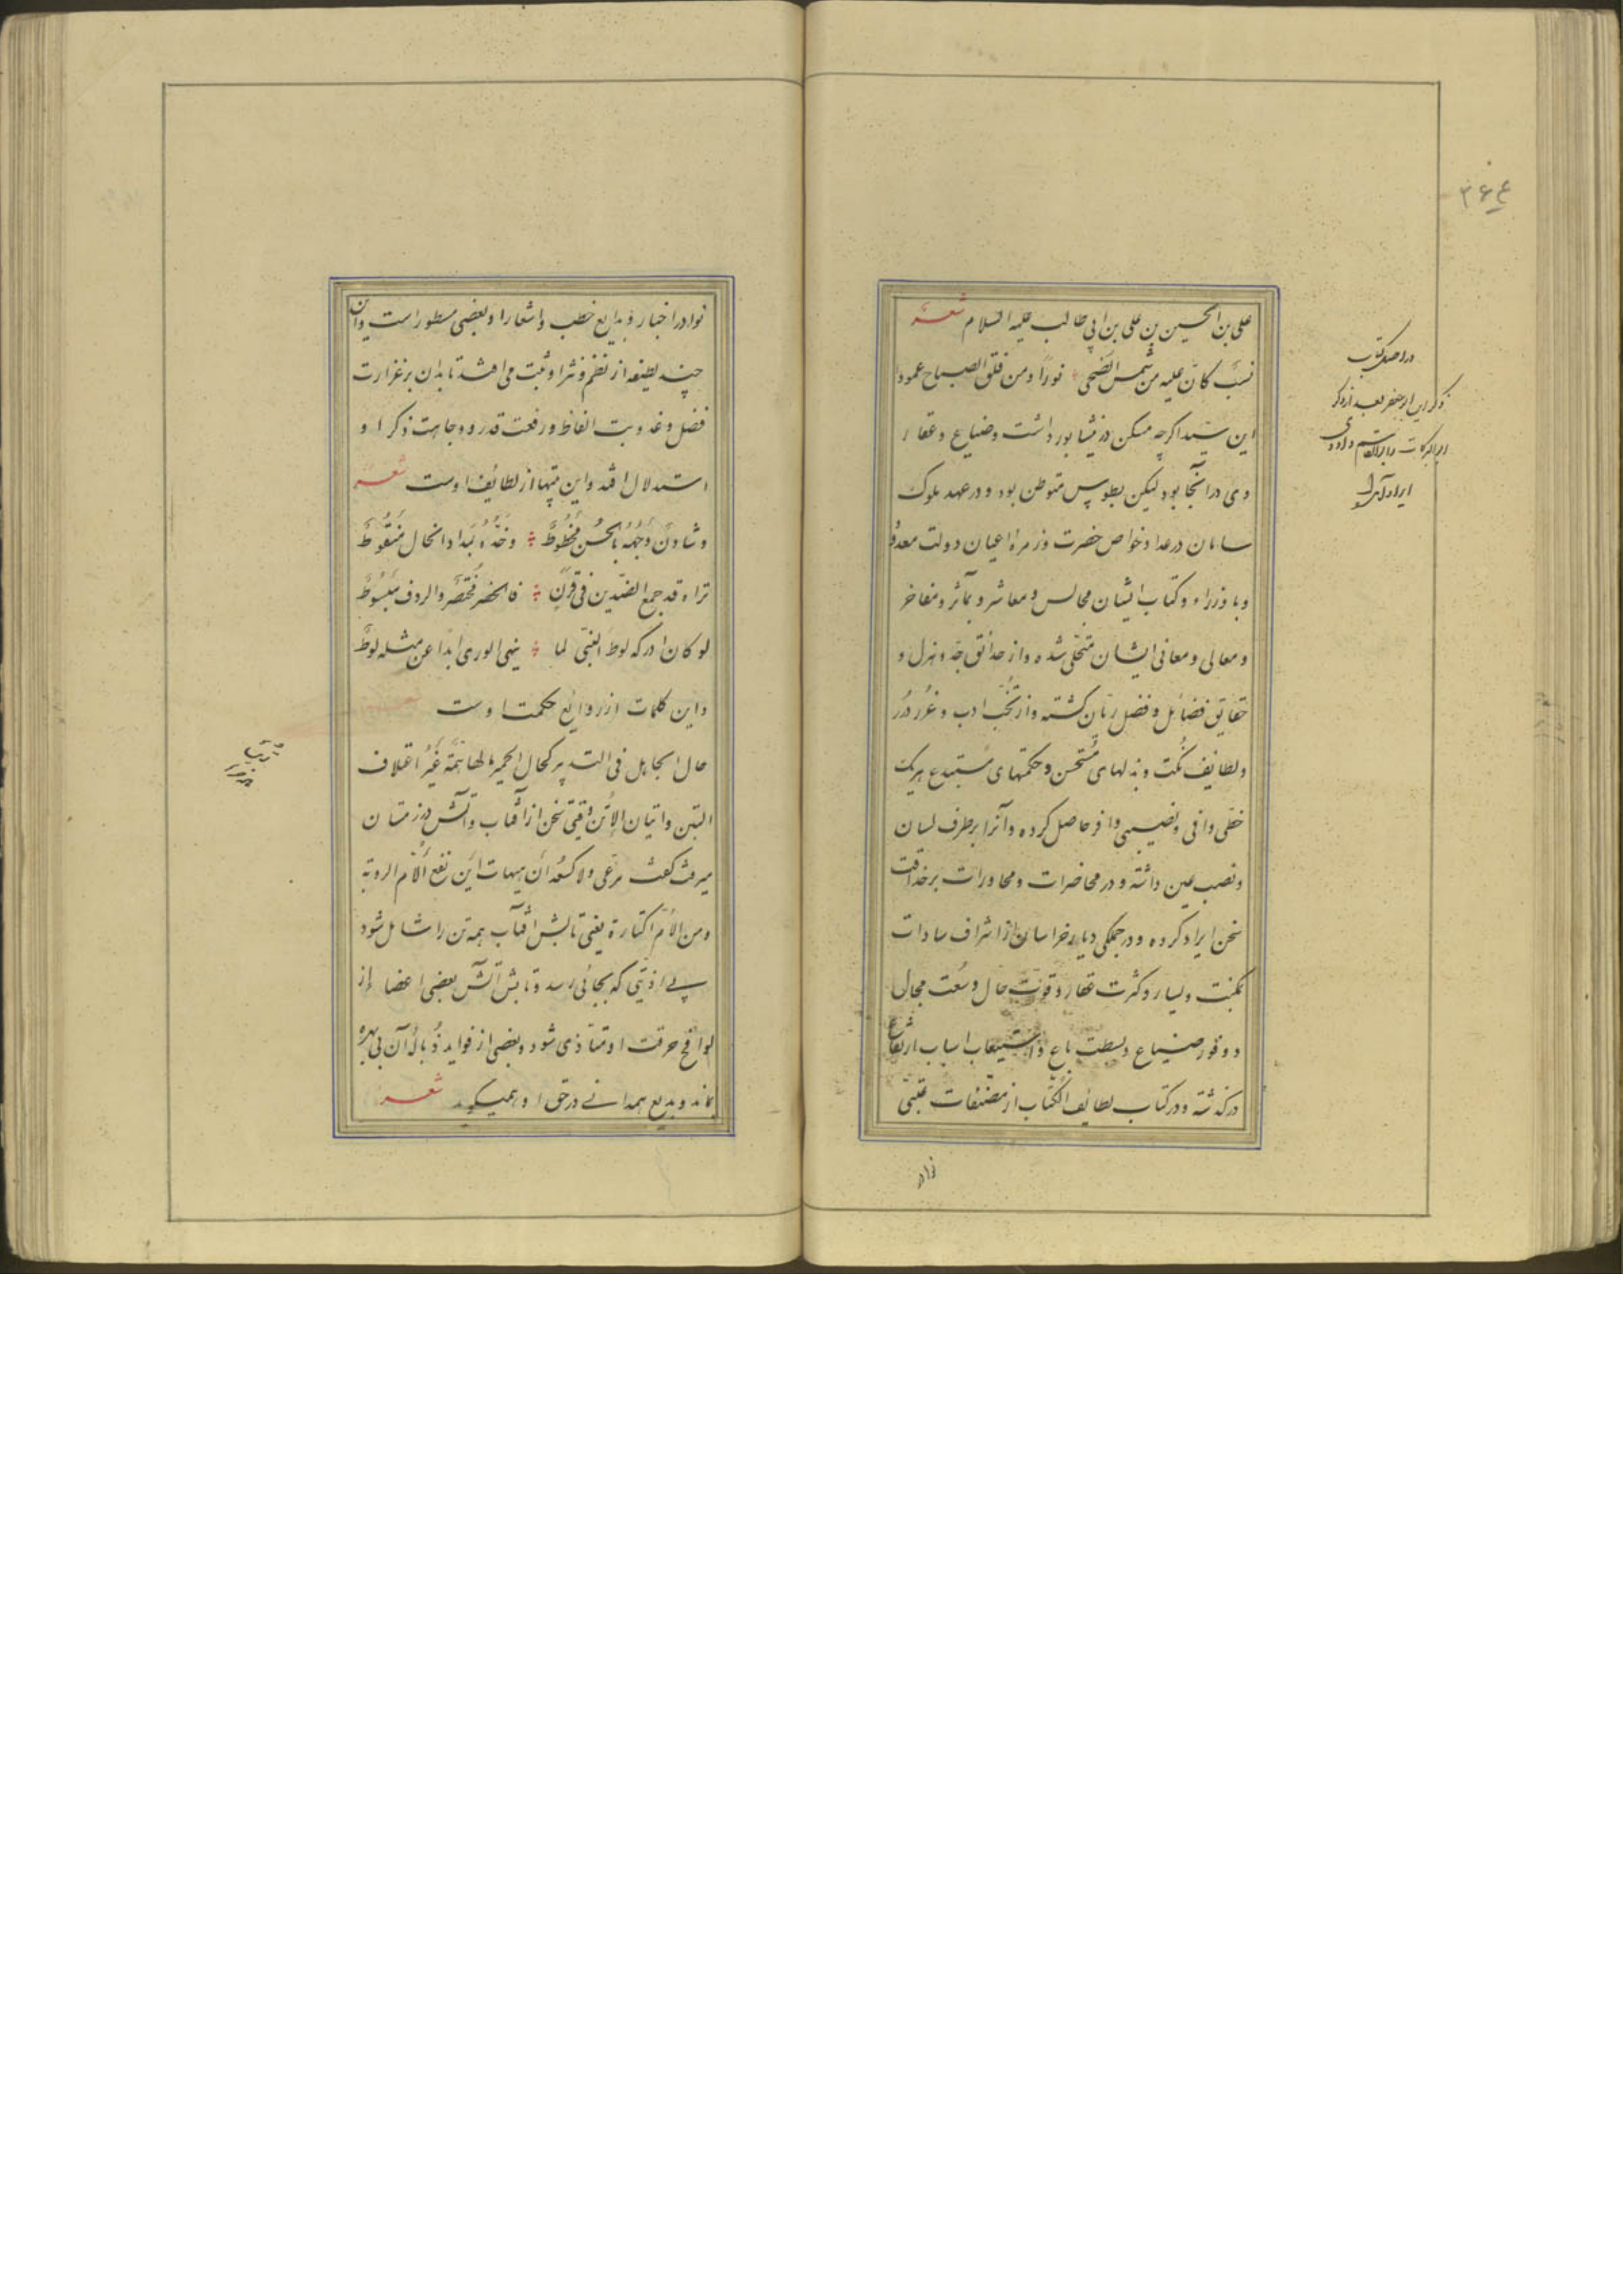 علی بن الحسین بن علی بن ابی طالب علیه السلام شعر
نسب کان علیه من شمس الضحی نورا و من فلق الصباح عمودا
این سید اگرچه مسکن در نیشابور داشت و ضیاع و عقار
وی در آنجا بود لیکن بطوس متوطن بود و در عهد ملوک
سامان در عداد خواص حضرت و زمره اعیان دولت معدود
و با وزراء و کتاب ایشان مجالس و معاشر و بمآثر و مفاخر
و معالی و معانی ایشان متحلی شده و از حدائق جد و هزل و
حقایق فضائل و فضل ریان کشته و از نخب ادب و غرر درر
و لطایف نکت و بذلهای مستحسن و حکمتهای مستبدع هر یک
حظی وافی و نصیبی وافر حاصل کرده و آنرا بر طرف لسان
و نصب عین داشته و در محاضرات و محاورات بر حذاقت
سخن ایراد کرده و در جملکی دیار خراسان از اشراف سادات
بمکنت و یسار و کثرت عقار و قوت حال و سعت مجال
و وفور ضیاع و بسطت باع و استیعاب اسباب ارتفاع
درگذشته و در کتاب لطائف الکتاب از مصنفات عتبی
نوادر
در اصل کتاب
ذکر این ابو جعفر بعد از ذکر
ابو البرکات و ابو القاسم داودی
ایراد
۳۶۴
نوادر اخبار و بدایع خطب و اشعار او بعضی مسطور است و این
چند لطیفه از نظم و نثر او ثبت می افتد تا بدان بر غزارت
فضل و عذوبت الفاظ و رفعت قدر و وجاهت ذکر او
استدلال افتد و این بیتها از لطائف اوست شعر
و شادن وجهه بالحسن مخطوط و خده بمداد الخال منقوط
تراه قد جمع الضدین فی قرن فالخصر مختصر و الردف مبسوط
لو کان ادرکه لوط النبی لما ینهی الوری ابدا عن مثله لوط
و این کلمات از روایع حکمت اوست
حال الجاهل فی التدبیر کحال الحمیر مالها همة غیر اعتلاف
التبن و اتیان الاتن وقتی سخن از آفتاب و آتش در زمستان
میرفت کفت مرعی و لا کسعدان هیهات این نفع الام الروبة
و من الام یعنی تابش آفتاب همه تن را شامل شود
بی اذیتی که بجائی رسد و تابش آتش بعضی اعضا از
لوافح حرقت او متأذی شود و بعضی از فواید آن بی بهره
بماند و بدیع همدانی در حق او همیگوید شعر